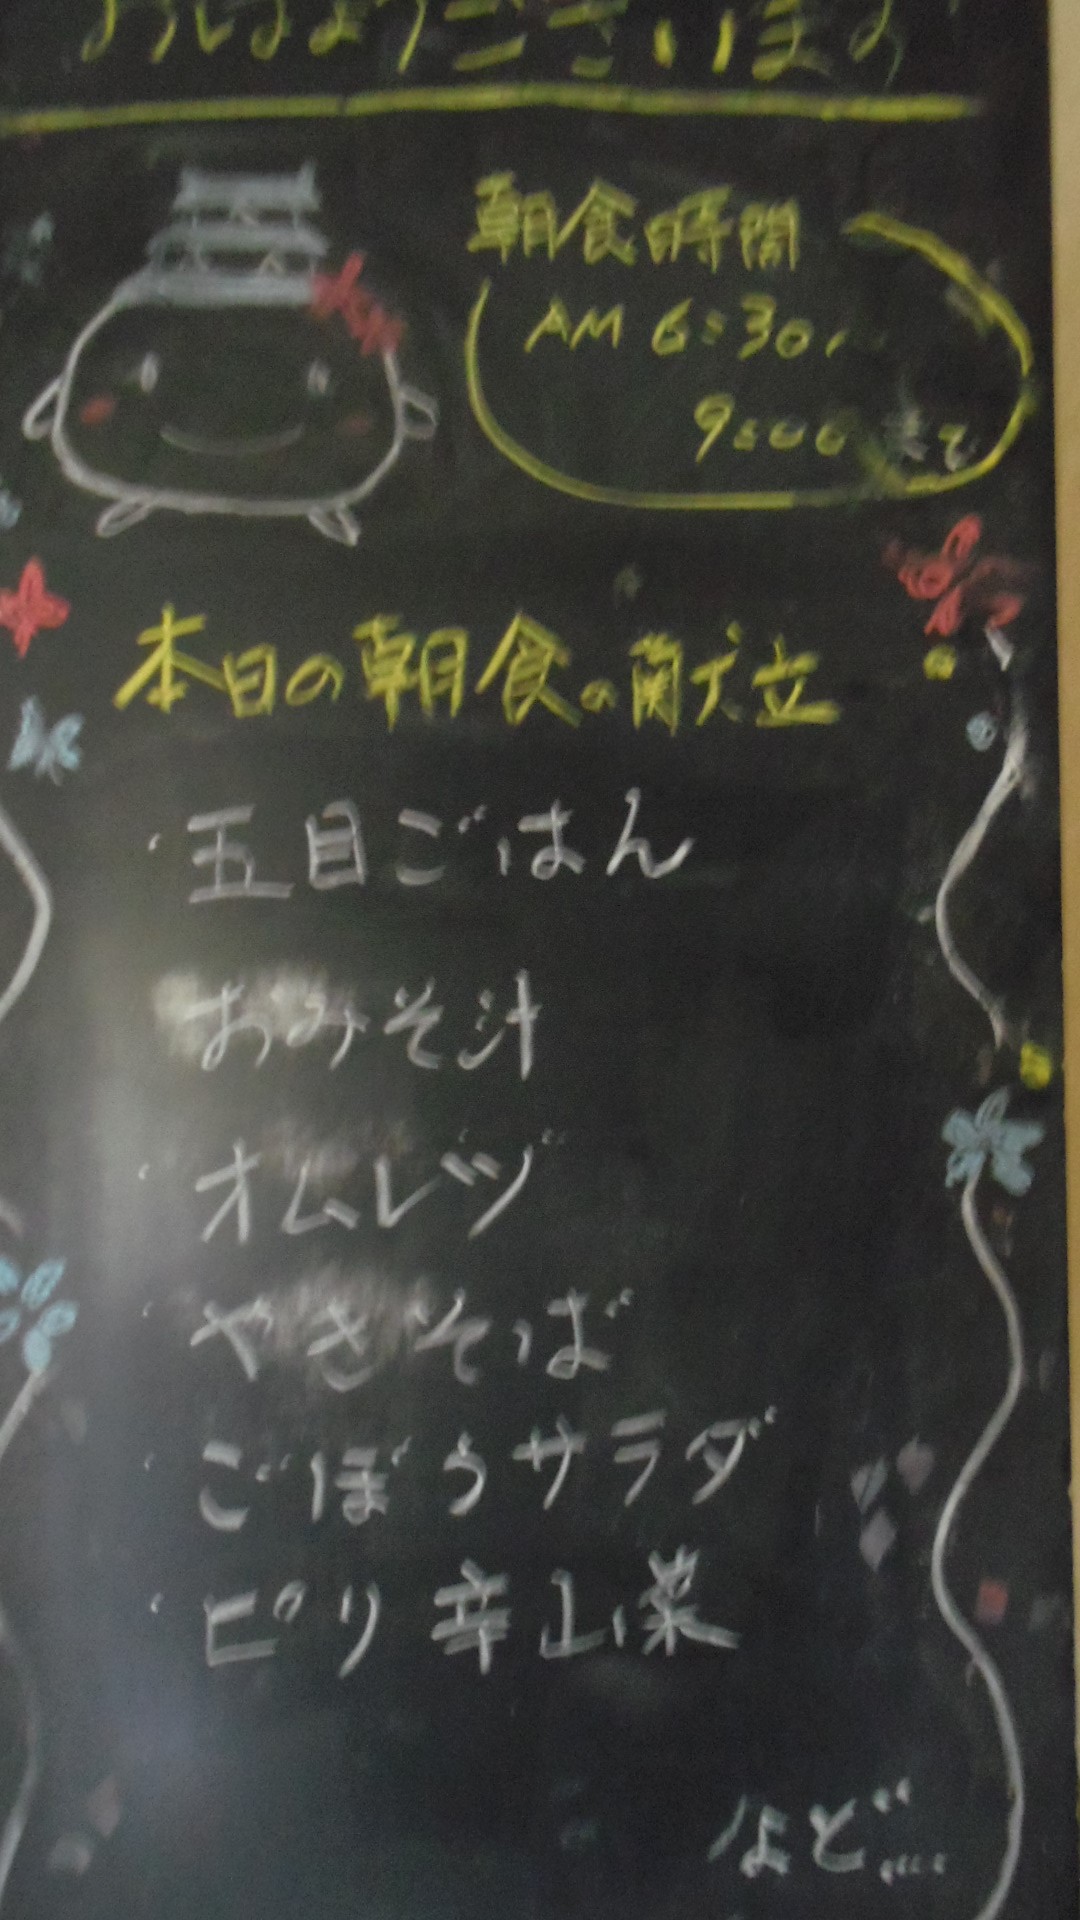 おはようございます
朝食時間
AM 6:30〜
9:00まで
本日の朝食の献立
・五目ごはん
おみそ汁
・オムレツ
・やきそば
・ごぼうサラダ
・ピリ辛山菜
など...